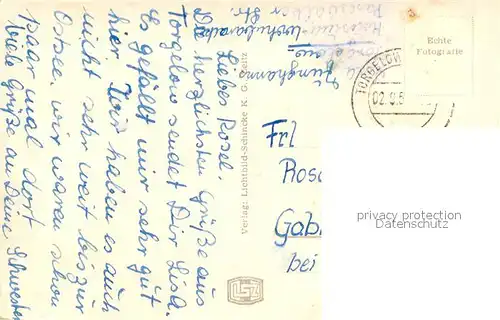 Liebes Rosel.
Die herzlichsten Grüße aus
Torgelow sendet Dir Lisa.
Es gefällt mir sehr gut
hier. Wir haben es auch
nicht sehr weit bis zur
Ostsee, wir waren schon
paar mal dort
Viele Grüße an Deine Schwester
Verlag: Lichtbild-Schincke K. G. Zeitz
Echte
Fotografie
TORGELOW
02.9.5
Frl
Rosa
Gab
bei
privacy protection
Datenschutz